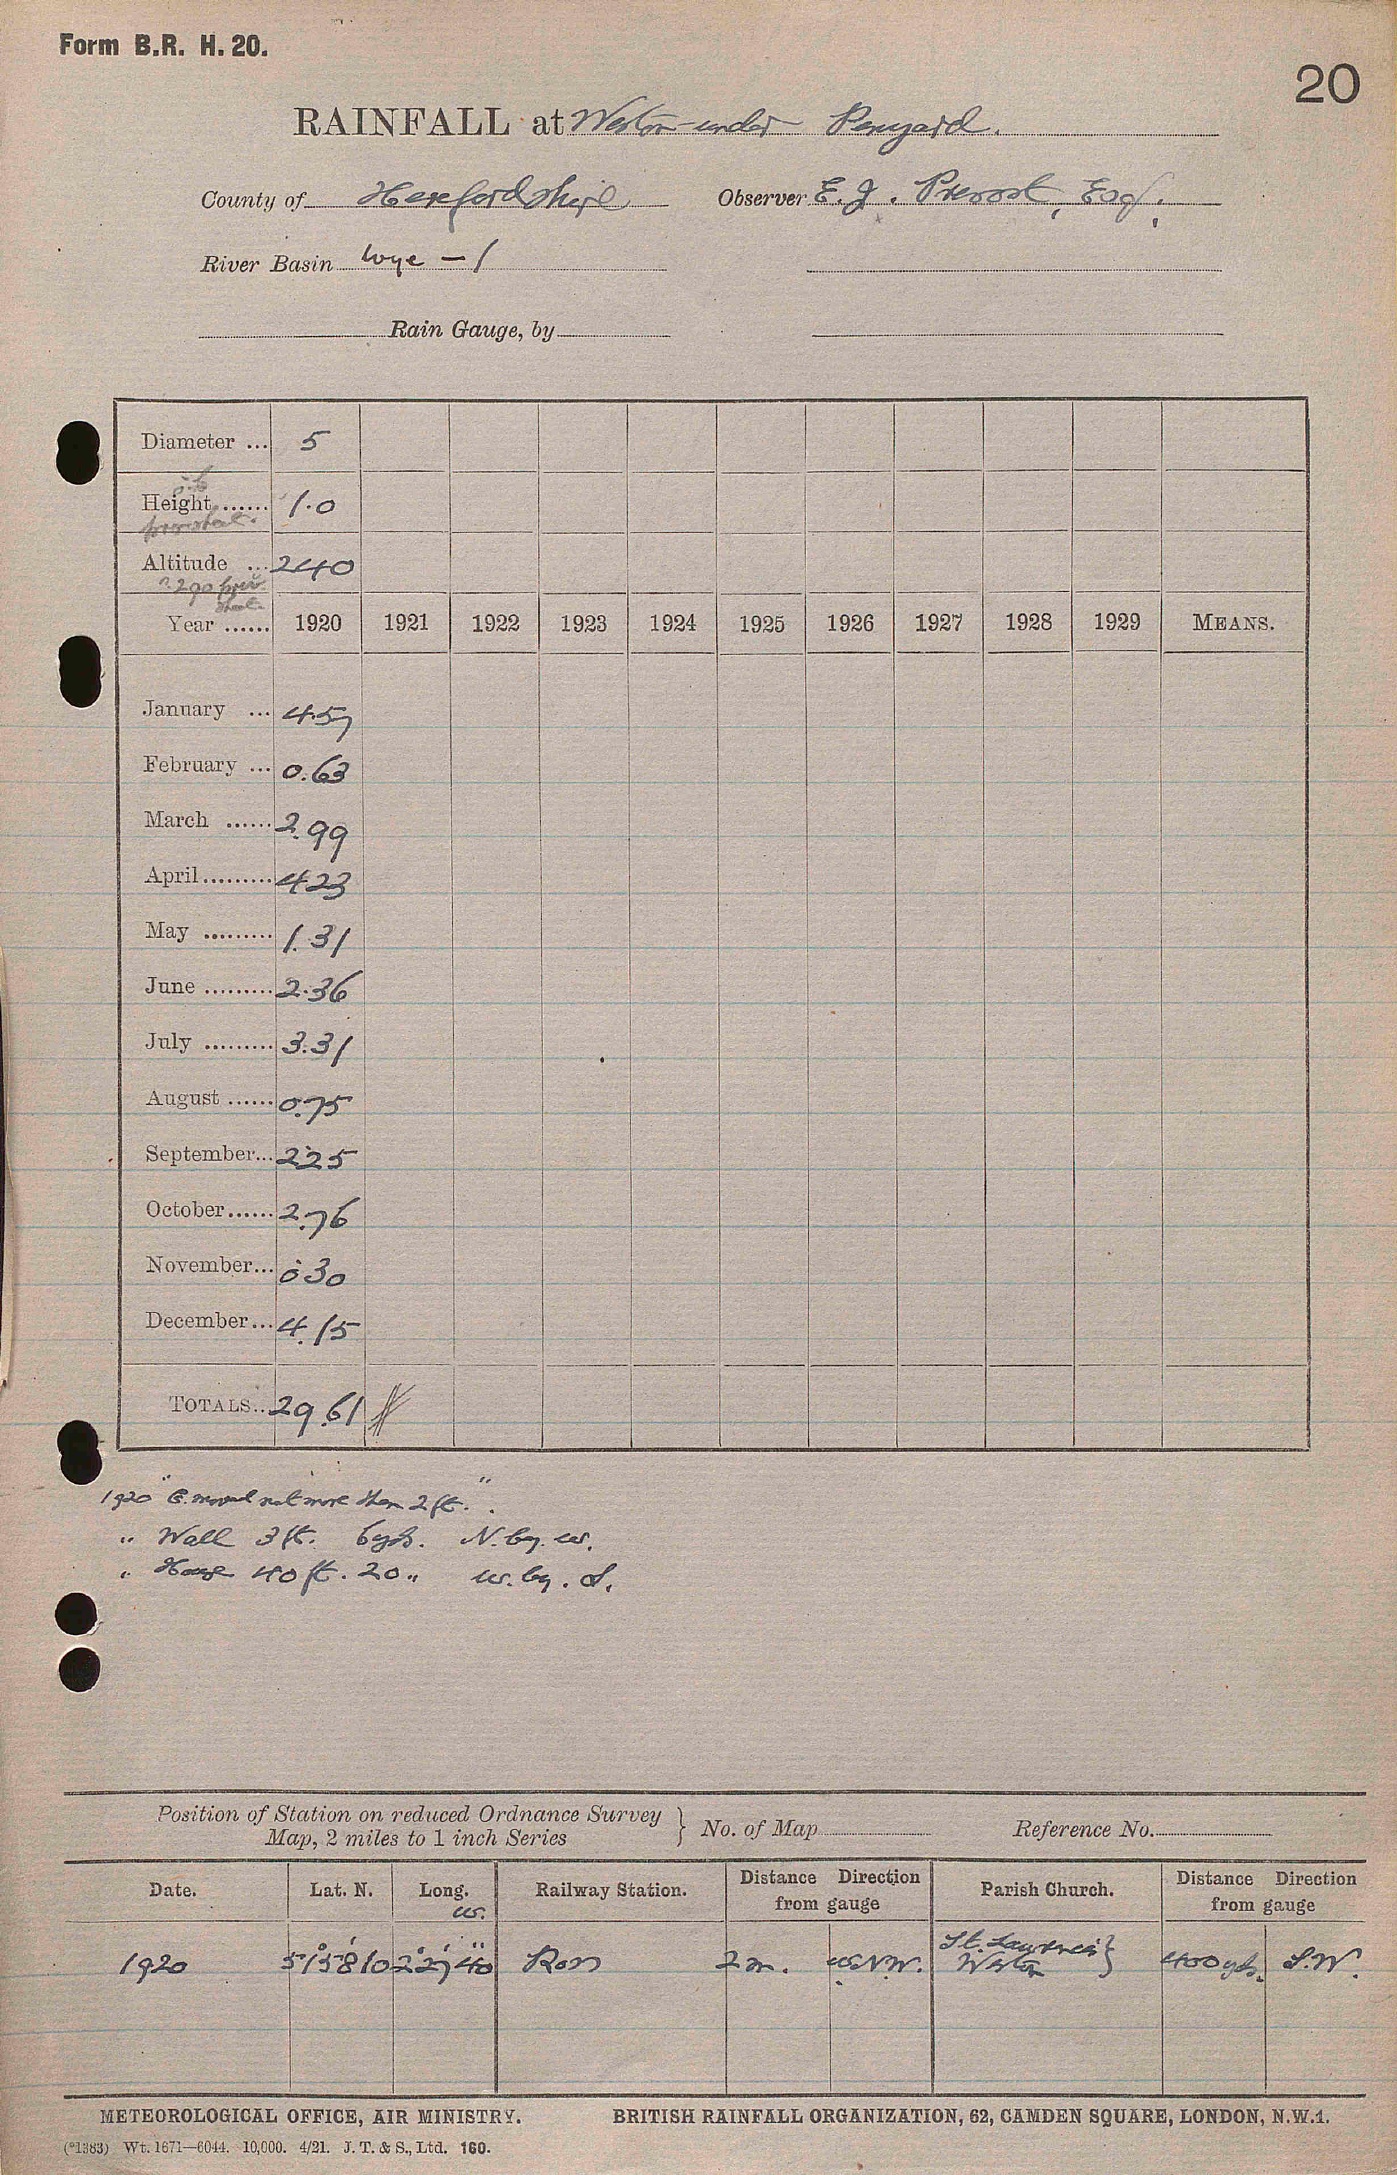 Form B.R. H. 20.
20
RAINFALL at Weston-under Penyard.
County of Herefordshire Observer E. J. Prevost, Esq.
River Basin Wye – 1
Rain Gauge, by
Diameter ... 5
Height ...... 1.0
Altitude ... 240
? 290 prev. sheet.
Year ...... 1920 1921 1922 1923 1924 1925 1926 1927 1928 1929 MEANS.
January ... 4.57
February ... 0.63
March ...... 2.99
April ......... 4.23
May ......... 1.31
June ......... 2.36
July ......... 3.31
August ...... 0.75
September... 2.25
October...... 2.76
November... 0.30
December... 4.15
TOTALS... 29.61
1920 "G. moved not more than 2 ft.".
" Wall 3 ft. 6 yds. N. by. W.
" House 40 ft. 20 " W. by. S.
Position of Station on reduced Ordnance Survey
Map, 2 miles to 1 inch Series } No. of Map Reference No.
Date. Lat. N. Long. W. Railway Station. Distance Direction from gauge Parish Church. Distance Direction from gauge
1920 51° 58' 10 2° 27' 40" Ross 2 m. W.N.W. St. Lawrence } Weston 400 yds. S.W.
METEOROLOGICAL OFFICE, AIR MINISTRY. BRITISH RAINFALL ORGANIZATION, 62, CAMDEN SQUARE, LONDON, N.W.1.
(*1383) Wt. 1671—6044. 10,000. 4/21. J. T. & S., Ltd. 160.